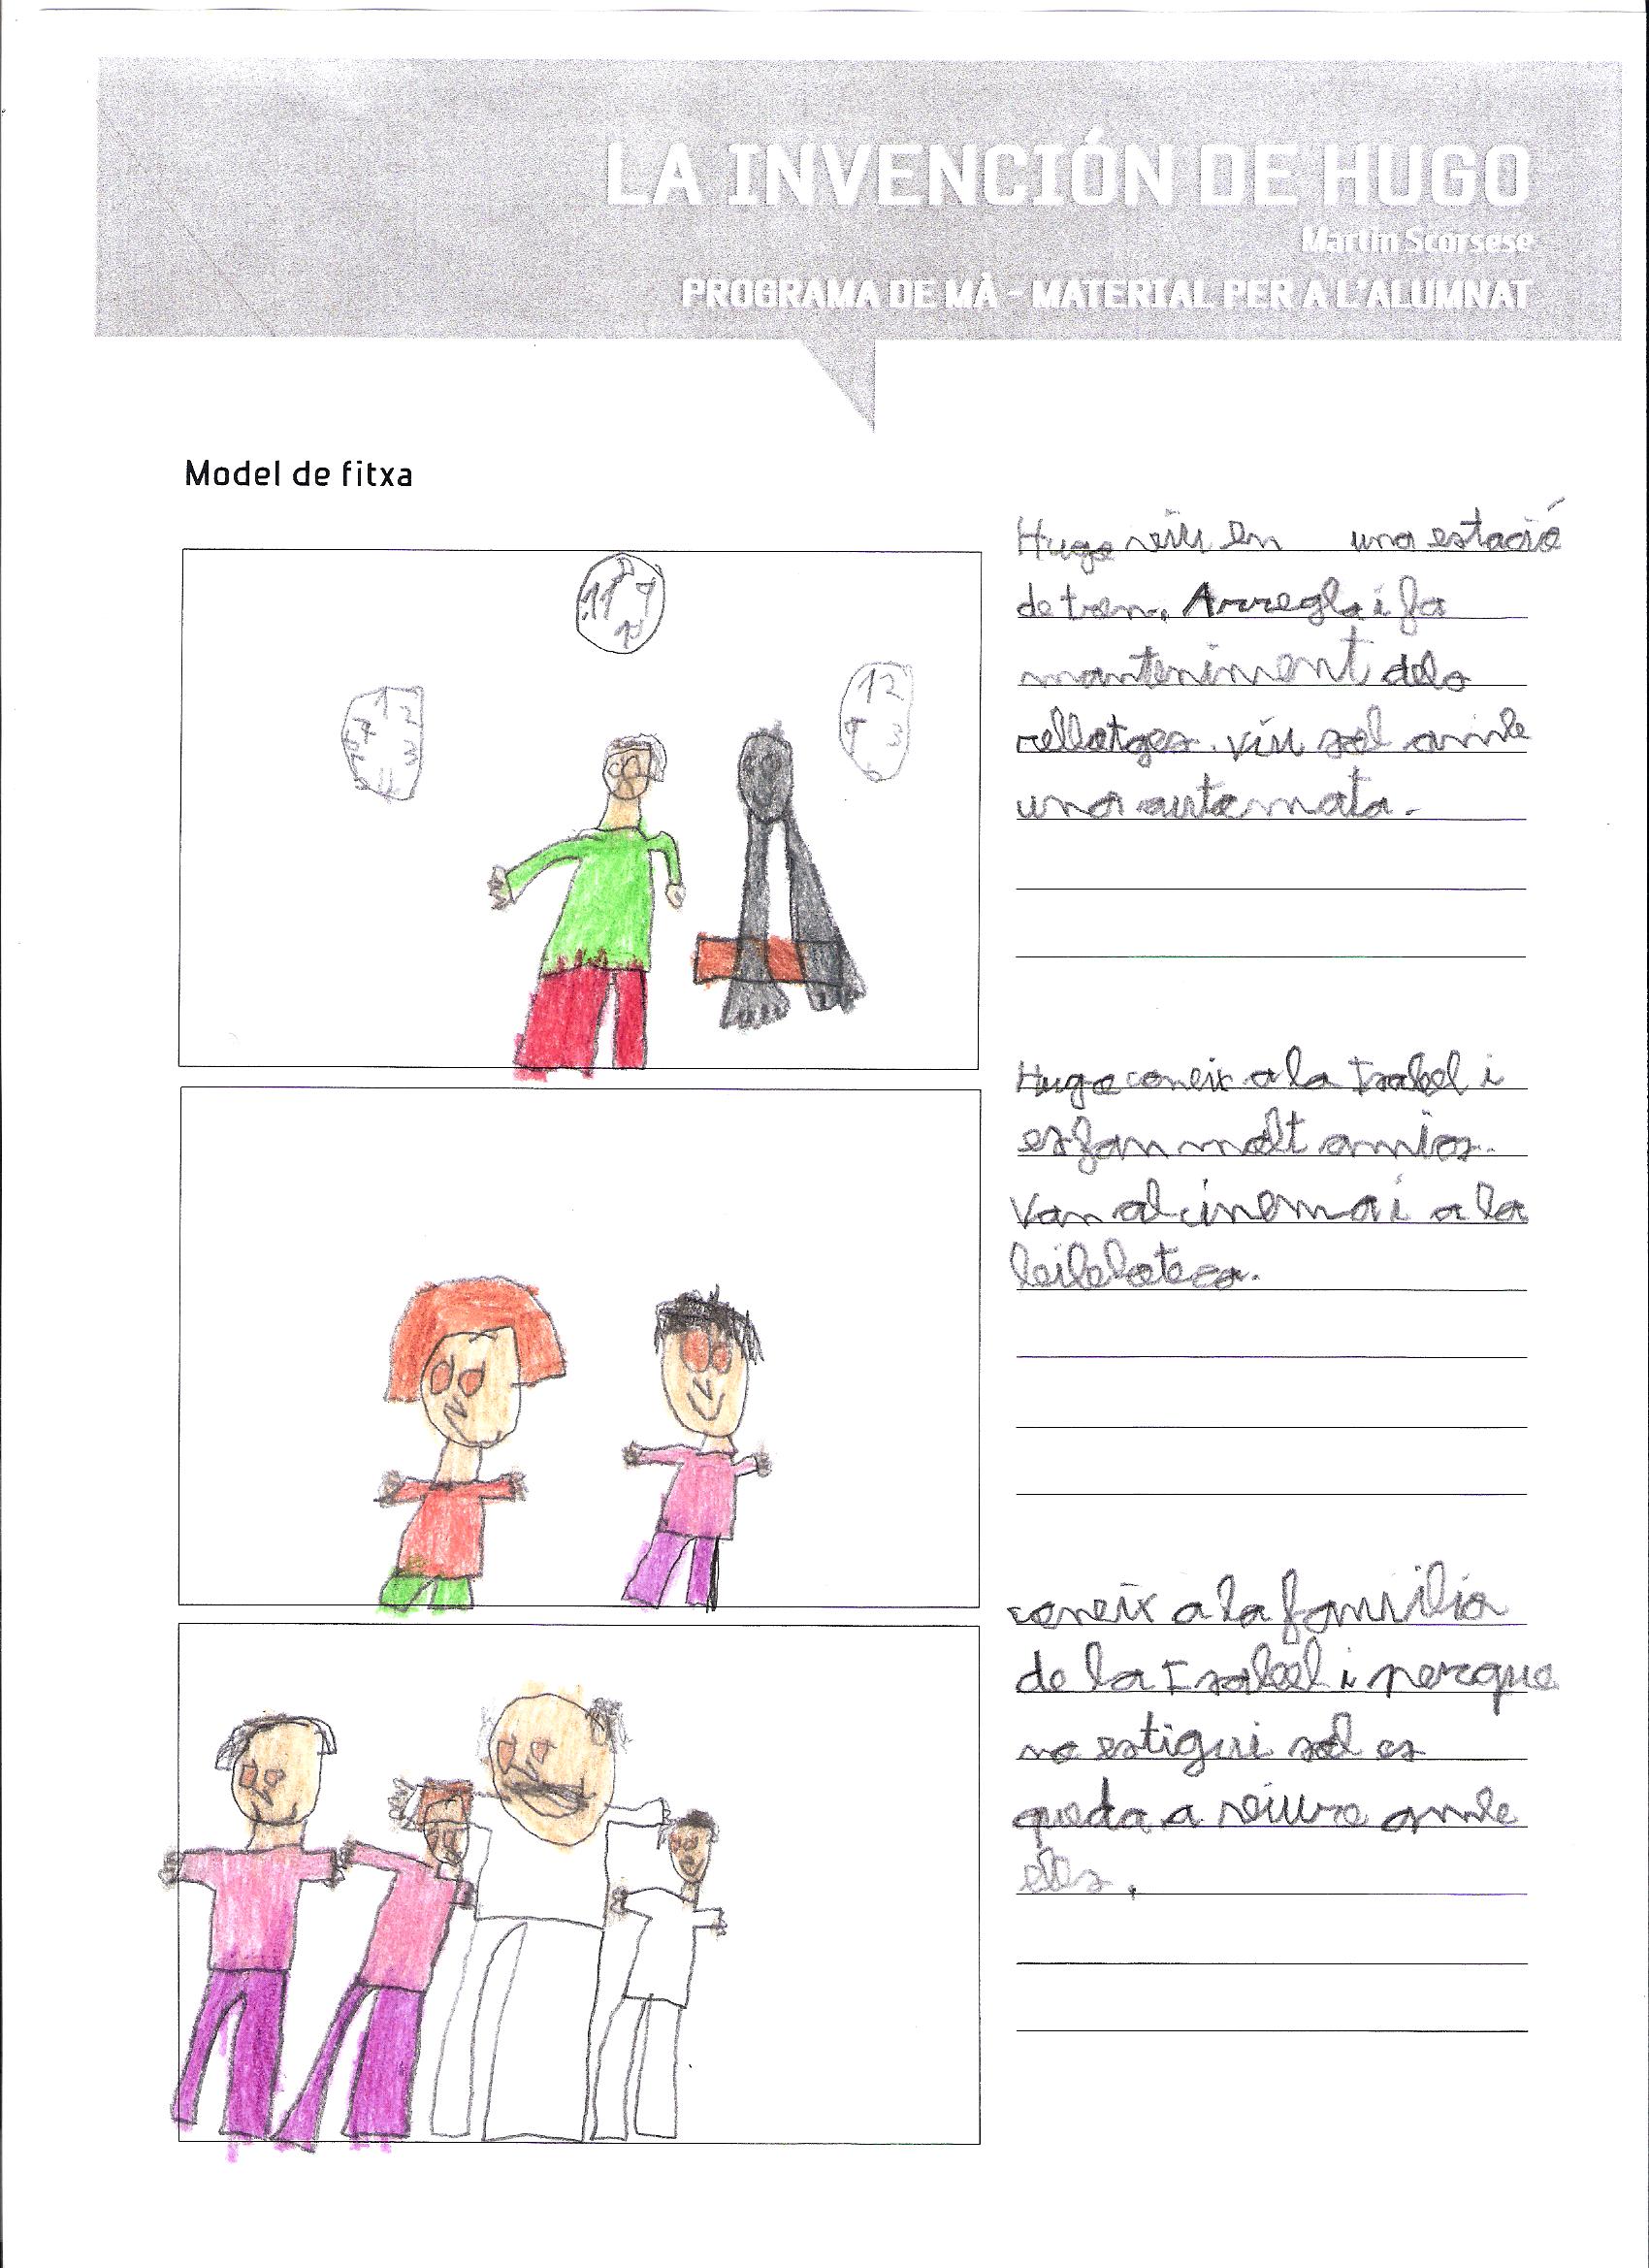 LA INVENCIÓN DE HUGO
Martin Scorsese
PROGRAMA DE MÀ - MATERIAL PER A L'ALUMNAT
Model de fitxa
Hugo viu en una estació
de tren. Arregla i fa
manteniment dels
rellotges. viu sol amb
una automata.
11 9
12
1 2
3
12
9 3
Hugo coneix a la Isabel i
es fan molt amics.
Van al cinema i a la
biblioteca.
coneix a la familia
de la Isabel i perque
no estigui sol es
queda a viure amb
ells.